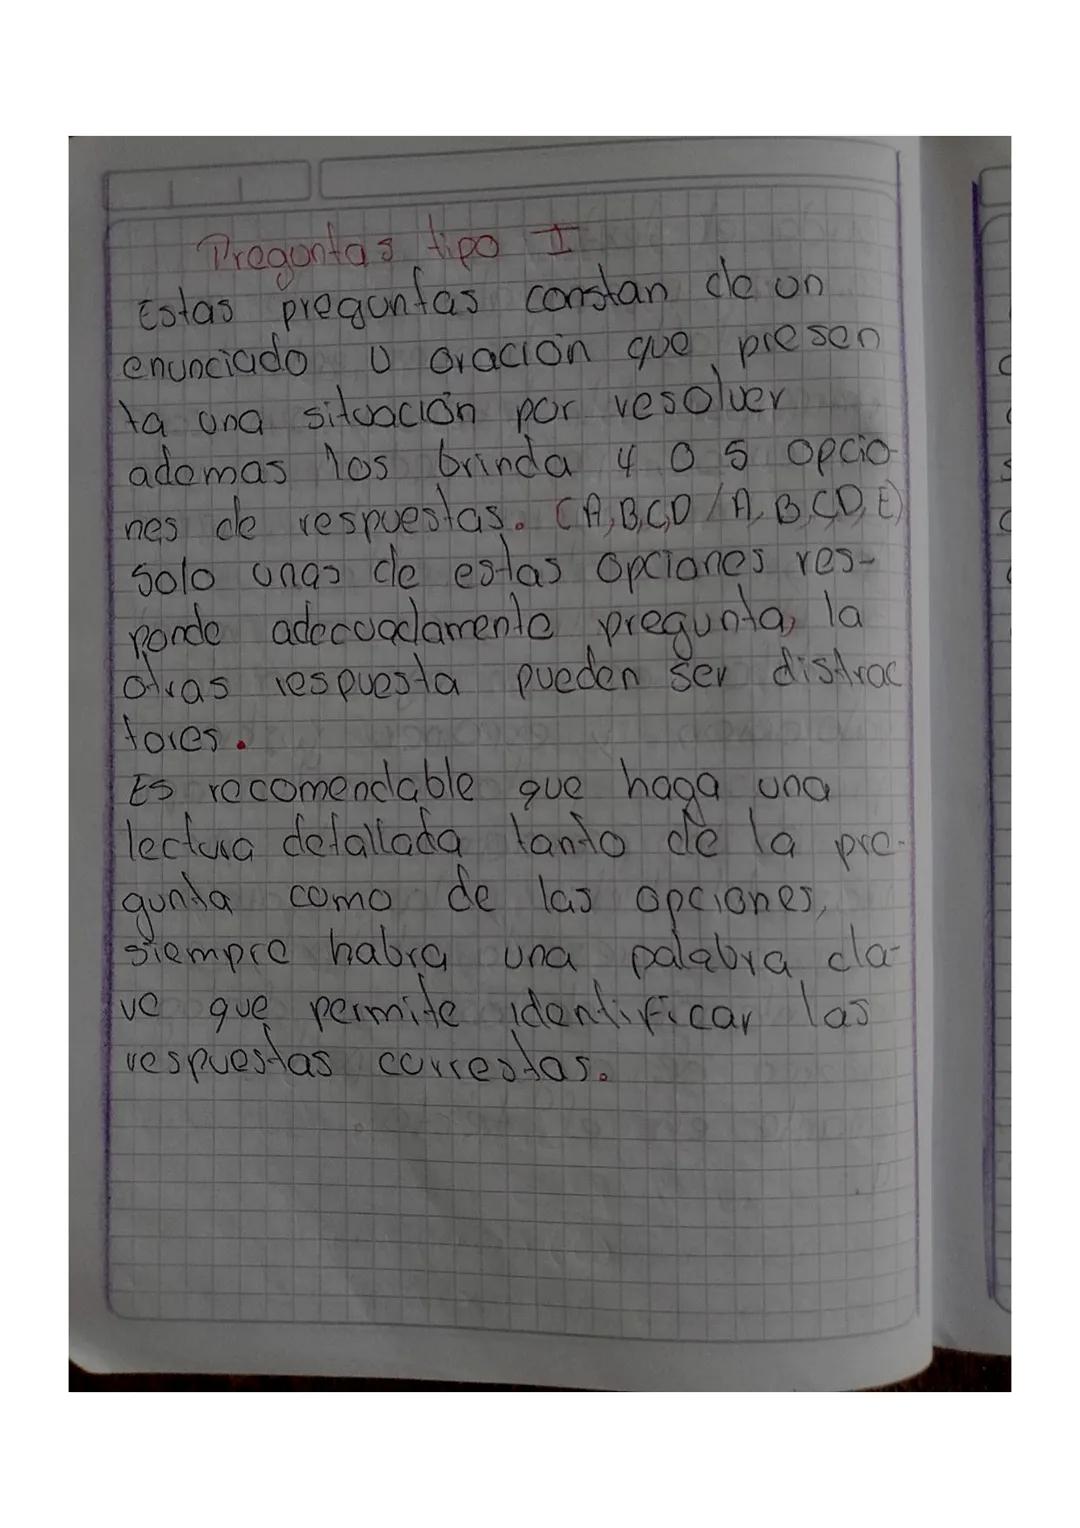 Preguntas tipo I
Estas preguntas constan de un
enunciado u oración que presen
ta una situación por resolver
ademas los brinda 4 o 5 opcio-
nes de respuestas. (A,B,C,D / A, B, C, D, E)
solo unas de estas opciones res-
ponde adecuadamente pregunta, la
otras respuesta pueden ser distrac
tores.
Es recomendable que haga una
lectura detallada tanto de la pre-
gunta como de las opciones,
siempre habra una palabra cla-
ve que permite identificar las
respuestas correstas.